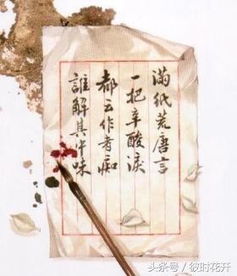 滿紙荒唐言
一把辛酸淚
都云作者痴
誰解其中味
头条号/彼时花开